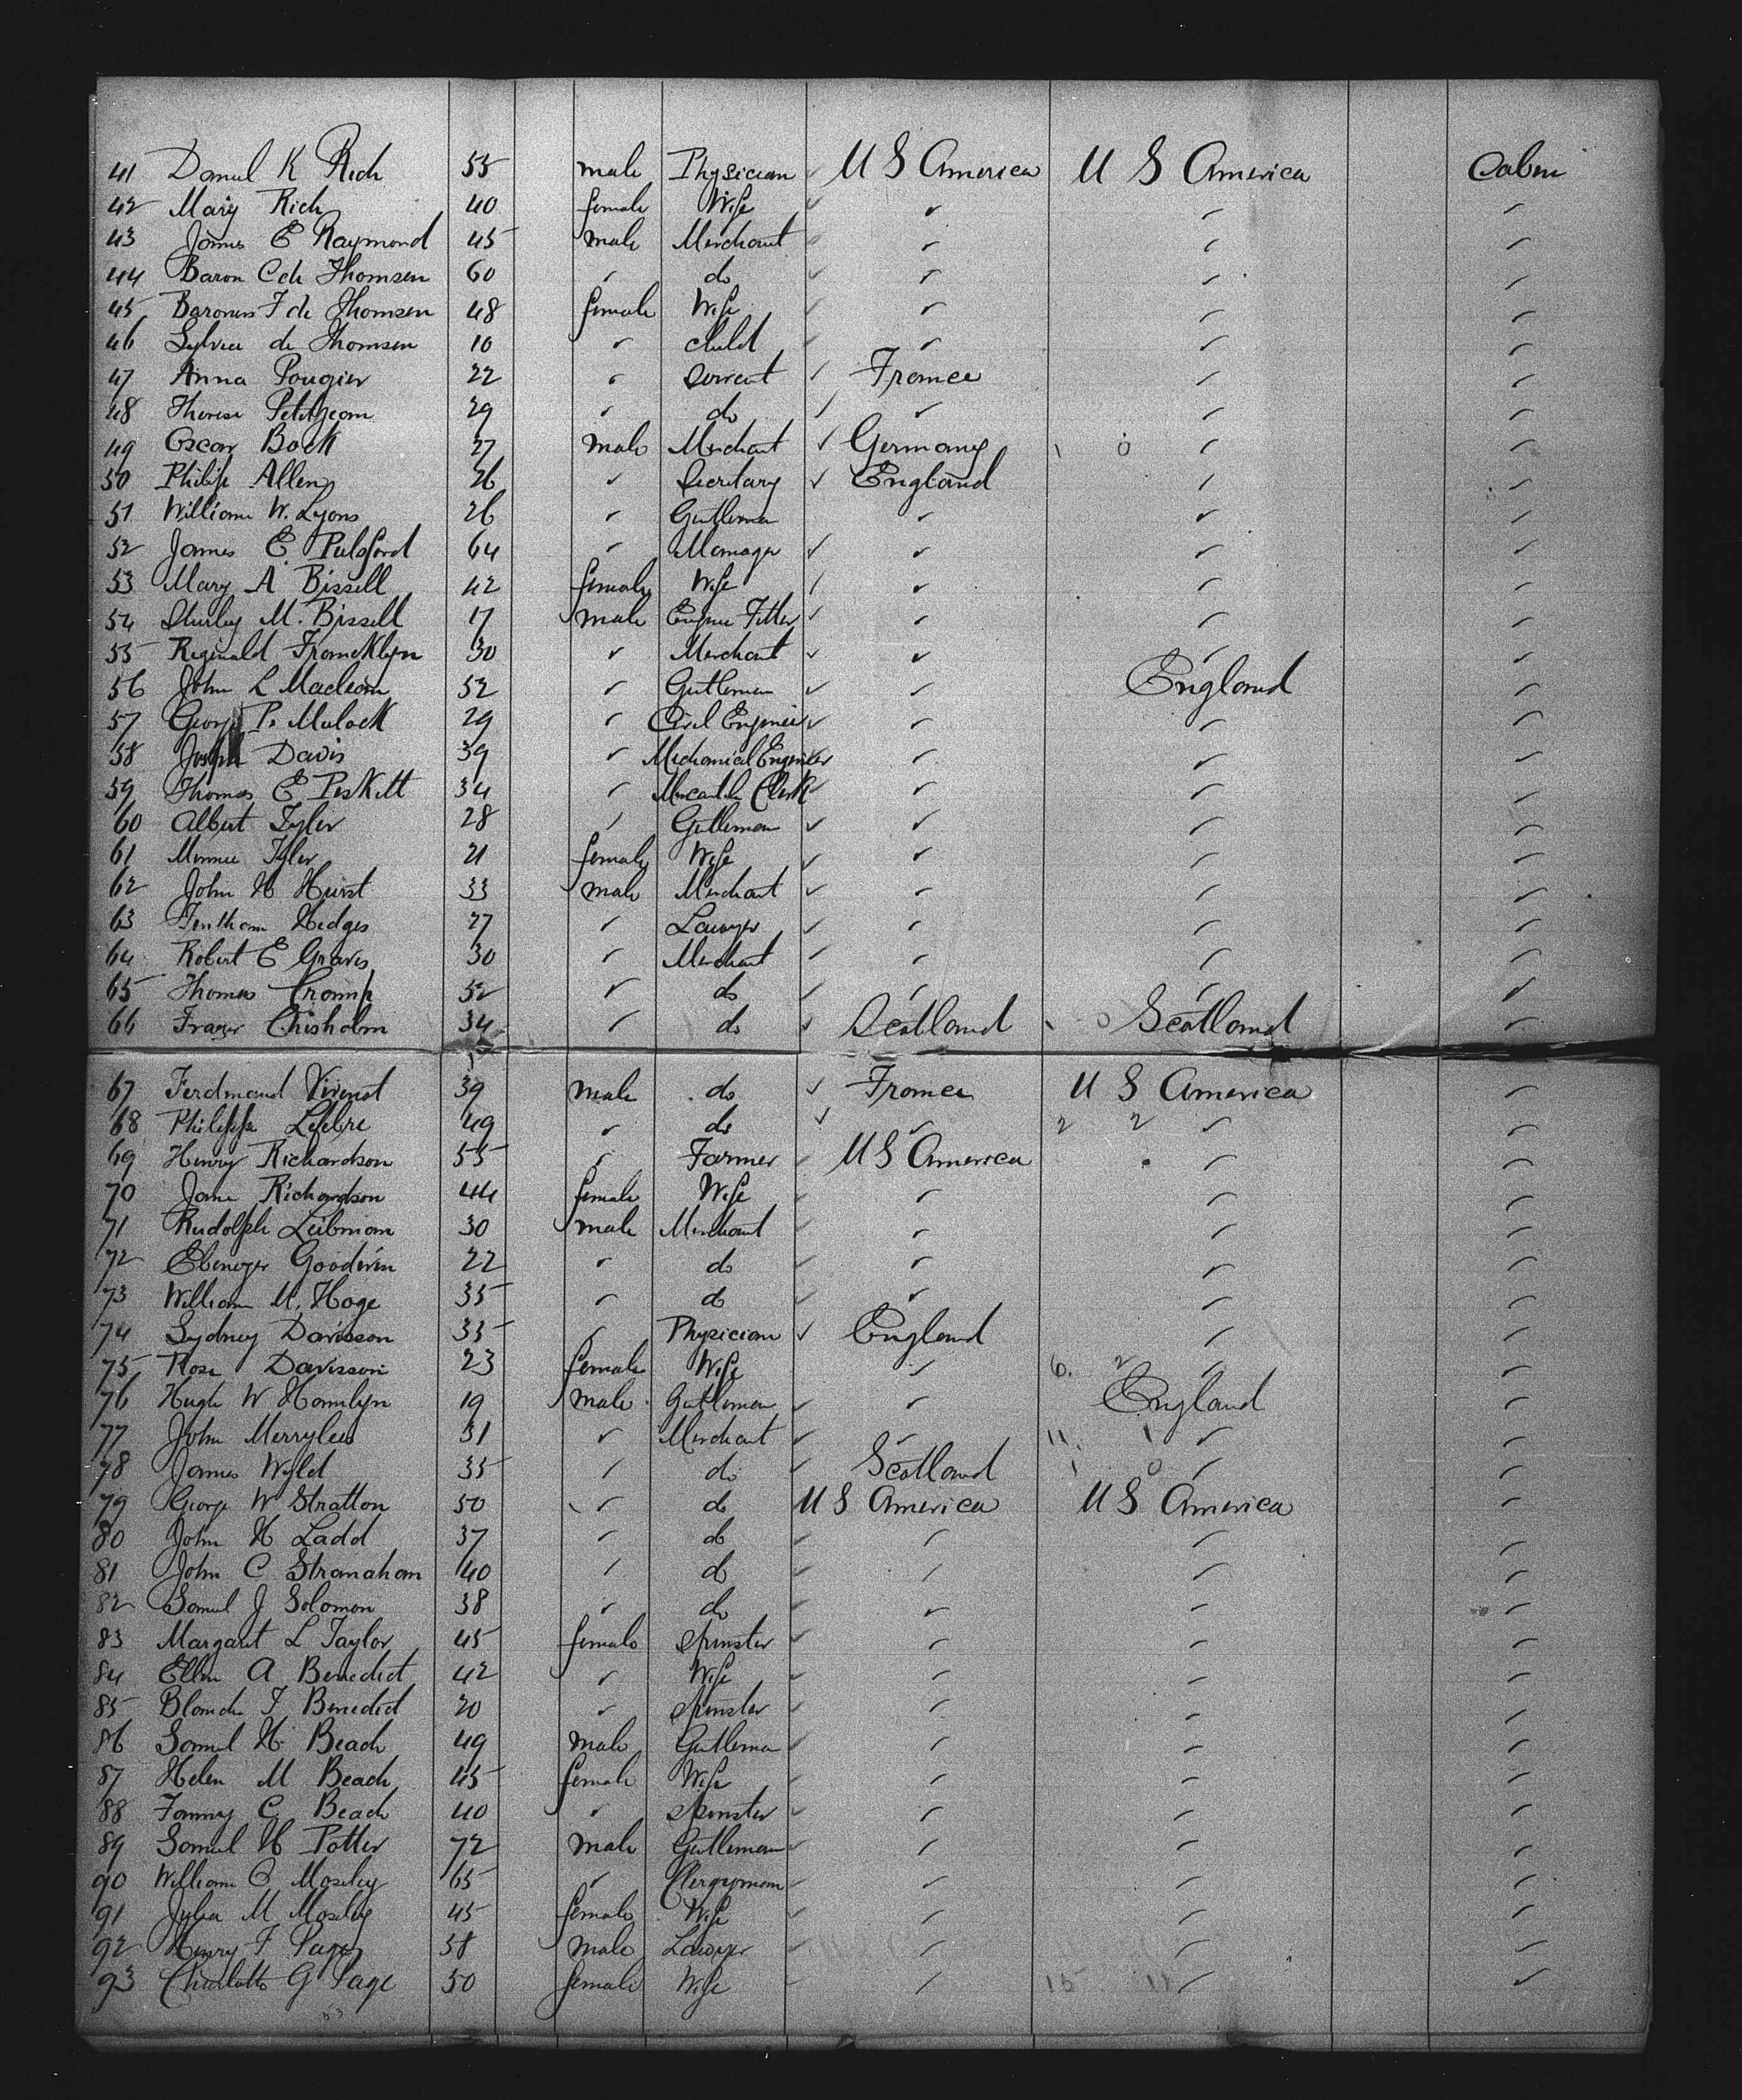 41 Daniel K Rich 55 male Physician ✓ U S America U S America Cabin
42 Mary Rich 40 female Wife ✓ ✓ ✓ ✓
43 James E Raymond 45 male Merchant ✓ ✓ ✓
44 Baron C de Thomsen 60 ✓ do ✓ ✓ ✓ ✓
45 Baroness F de Thomsen 48 female Wife ✓ ✓ ✓ ✓
46 Sylvia de Thomsen 10 ✓ child ✓ ✓ ✓ ✓
47 Anna Pougier 22 ✓ Servant ✓ France ✓ ✓
48 Therese Petitjean 29 ✓ do ✓ ✓ ✓ ✓
49 Oscar Bock 27 male Merchant ✓ Germany 1 0 ✓ ✓
50 Philip Allen 26 ✓ Secretary ✓ England ✓ ✓
51 William W. Lyons 26 ✓ Gentleman ✓ ✓ ✓
52 James E Pulsford 64 ✓ Manager ✓ ✓ ✓ ✓
53 Mary A Bissell 42 female Wife ✓ ✓ ✓ ✓
54 Shirley M. Bissell 17 male Engine Fitter ✓ ✓ ✓ ✓
55 Reginald Francklyn 30 ✓ Merchant ✓ ✓ ✓ ✓
56 John L Maclean 52 ✓ Gentleman ✓ ✓ England ✓
57 George P. Mulock 29 ✓ Civil Engineer ✓ ✓ ✓ ✓
58 Joseph Davis 39 ✓ Mechanical Engineer ✓ ✓ ✓
59 Thomas E Peskett 34 ✓ Mercantile Clerk ✓ ✓ ✓ ✓
60 Albert Tyler 28 ✓ Gentleman ✓ ✓ ✓ ✓
61 Minnie Tyler 21 female Wife ✓ ✓ ✓ ✓
62 John H Hurst 33 male Merchant ✓ ✓ ✓ ✓
63 Hedges 27 ✓ Lawyer ✓ ✓ ✓ ✓
64 Robert E Graves 30 ✓ Merchant ✓ ✓ ✓ ✓
65 Thomas Cramp 52 ✓ do ✓ ✓ ✓ ✓
66 Frazer Chisholm 34 ✓ do ✓ Scotland 1 0 Scotland ✓
67 Ferdinand Vivenot 39 male do ✓ France U S America ✓
68 Philippe Lefebre 49 ✓ do ✓ ✓ 2 2 ✓ ✓
69 Henry Richardson 55 ✓ Farmer ✓ U S America ✓ ✓
70 Jane Richardson 44 female Wife ✓ ✓ ✓ ✓
71 Rudolph Leibman 30 male Merchant ✓ ✓ ✓ ✓
72 Ebenezer Goodwin 22 ✓ do ✓ ✓ ✓ ✓
73 William M. Hoge 35 ✓ do ✓ ✓ ✓ ✓
74 Sydney Davisson 35 ✓ Physician ✓ England ✓ ✓
75 Rose Davisson 23 female Wife ✓ 6. 2 ✓ ✓
76 Hugh W Hamlyn 19 male Gentleman ✓ ✓ England ✓
77 John Merrylees 31 ✓ Merchant ✓ ✓ 11 1 ✓ ✓
78 James Wyld 35 ✓ do ✓ Scotland 1 0 ✓ ✓
79 George W Stratton 50 ✓ do U S America U S America ✓
80 John H Ladd 37 ✓ do ✓ ✓ ✓ ✓
81 John C Stranahan 40 ✓ do ✓ ✓ ✓ ✓
82 Samul J Solomon 38 ✓ do ✓ ✓ ✓ ✓
83 Margaret L Taylor 45 female Spinster ✓ ✓ ✓ ✓
84 Ellen A Benedict 42 ✓ Wife ✓ ✓ ✓ ✓
85 Blanche T Benedict 20 ✓ Spinster ✓ ✓ ✓ ✓
86 Samul H Beach 49 male Gentleman ✓ ✓ ✓ ✓
87 Helen M Beach 45 female Wife ✓ ✓ ✓ ✓
88 Fanny C Beach 40 ✓ Spinster ✓ ✓ ✓ ✓
89 Samul H Potter 72 male Gentleman ✓ ✓ ✓ ✓
90 William O Moseley 65 ✓ Clergyman ✓ ✓ ✓ ✓
91 Julia M Moseley 45 female Wife ✓ ✓ ✓ ✓
92 Henry F Page 58 male Lawyer ✓ ✓ ✓ ✓
93 Charlotte G Page 50 female Wife ✓ ✓ 15 11 ✓ ✓
53